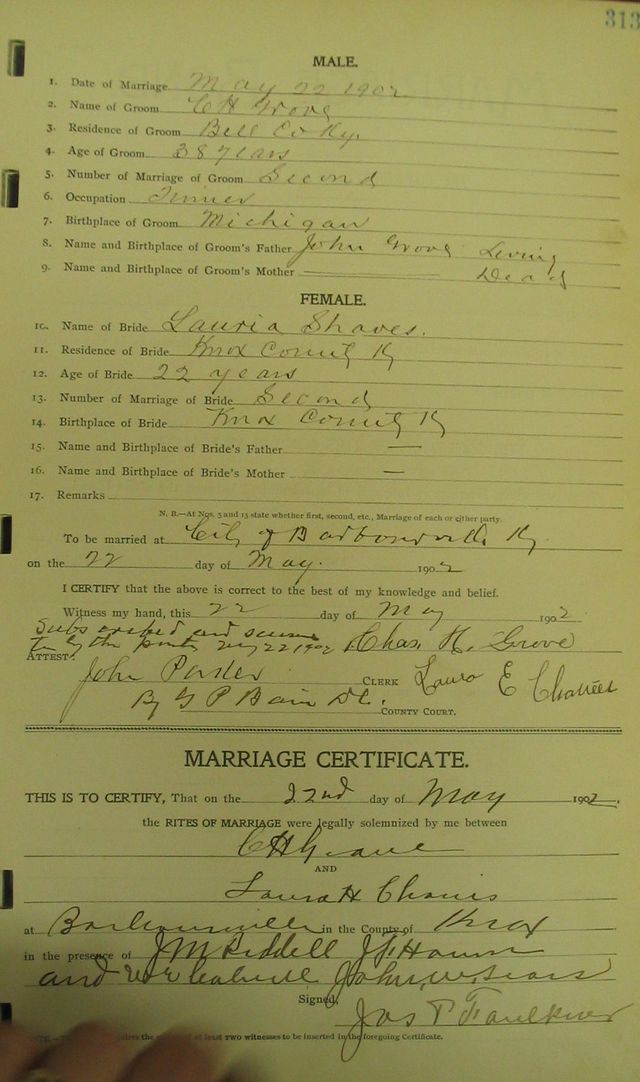 313
MALE.
1. Date of Marriage May 22 1902
2. Name of Groom C H Grove
3. Residence of Groom Bell Co Ky.
4. Age of Groom 38 years
5. Number of Marriage of Groom Second
6. Occupation Tinner
7. Birthplace of Groom Michigan
8. Name and Birthplace of Groom's Father John Grove Living
9. Name and Birthplace of Groom's Mother Dead
FEMALE.
10. Name of Bride Lauria Shaves.
11. Residence of Bride Knox County Ky
12. Age of Bride 22 years
13. Number of Marriage of Bride Second
14. Birthplace of Bride Knox County Ky
15. Name and Birthplace of Bride's Father —
16. Name and Birthplace of Bride's Mother —
17. Remarks
N. B.—At Nos. 5 and 13 state whether first, second, etc., Marriage of each or either party.
To be married at City of Barbourville Ky
on the 22 day of May. 1902
I CERTIFY that the above is correct to the best of my knowledge and belief.
Witness my hand, this 22 day of May 1902
Subscribed and sworn
to by the parties May 22 1902 Chas. H. Grove
ATTEST:
John Parker CLERK Laura E
By G P Bain D.C. COUNTY COURT.
MARRIAGE CERTIFICATE.
THIS IS TO CERTIFY, That on the 22nd day of May 1902.
the RITES OF MARRIAGE were legally solemnized by me between
C H
AND
Laura H
at Barbourville in the County of Knox
in the presence of J M Riddell J
and John W. Sears
Signed, Jas P Faulkner
of at least two witnesses to be inserted in the foregoing Certificate.